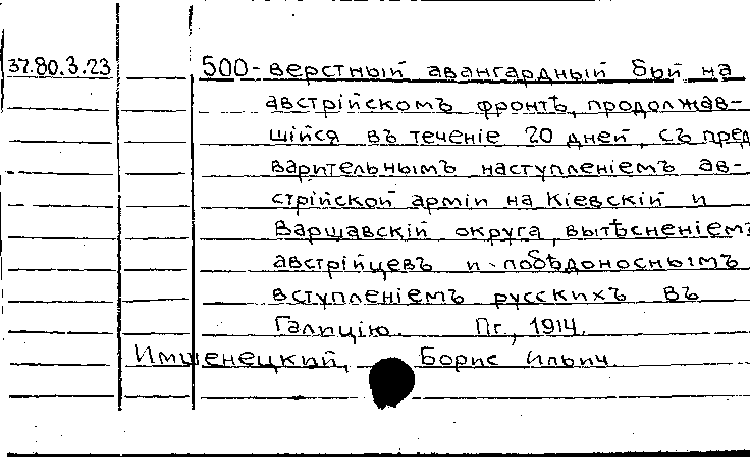 37.80.3.23 500-верстный авангардный бой на
австрійскомъ фронтѣ, продолжав-
шійся въ теченіе 20 дней, съ пред
варительнымъ наступленіемъ ав-
стрійской арміи на Кіевскій и
Варшавскій округа, вытѣсненіемъ
австрійцевъ и побѣдоноснымъ
вступленіемъ русскихъ въ
Галицію. Пг., 1914.
Имшенецкий, Борис Ильич.